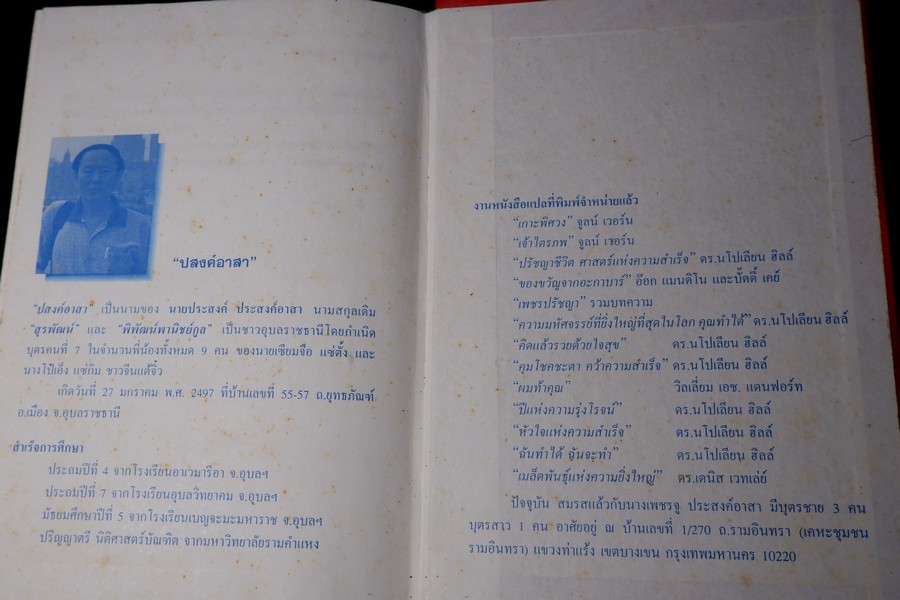 "ปสงค์อาสา"
"ปสงค์อาสา" เป็นนามของ นายประสงค์ ประสงค์อาสา นามสกุลเดิม
"สุรพัฒน์" และ "พิพัฒน์พานิชย์กูล" เป็นชาวอุบลราชธานีโดยกำเนิด
บุตรคนที่ 7 ในจำนวนพี่น้องทั้งหมด 9 คน ของนายเซียมจือ แซ่ตั้ง และ
นางโป้เฮ็ง แซ่กิม ชาวจีนแต้จิ๋ว
เกิดวันที่ 27 มกราคม พ.ศ. 2497 ที่บ้านเลขที่ 55-57 ถ.ยุทธภัณฑ์
อ.เมือง จ.อุบลราชธานี
สำเร็จการศึกษา
ประถมปีที่ 4 จากโรงเรียนอาเวมารีอา จ.อุบลฯ
ประถมปีที่ 7 จากโรงเรียนอุบลวิทยาคม จ.อุบลฯ
มัธยมศึกษาปีที่ 5 จากโรงเรียนเบญจะมะมหาราช จ.อุบลฯ
ปริญญาตรี นิติศาสตร์บัณฑิต จากมหาวิทยาลัยรามคำแหง
งานหนังสือแปลที่พิมพ์จำหน่ายแล้ว
"เกาะพิศวง" จูลน์ เวอร์น
"เจ้าไตรภพ" จูลน์ เวอร์น
"ปรัชญาชีวิต ศาสตร์แห่งความสำเร็จ" ดร.นโปเลียน ฮิลล์
"ของขวัญจากอะกาบาร์" อ๊อก แมนดิโน และบั๊ตตี้ เคย์
"เพชรปรัชญา" รวมบทความ
"ความมหัศจรรย์ที่ยิ่งใหญ่ที่สุดในโลก คุณทำได้" ดร.นโปเลียน ฮิลล์
"คิดแล้วรวยด้วยใจสุข" ดร.นโปเลียน ฮิลล์
"คุมโชคชะตา คว้าความสำเร็จ" ดร.นโปเลียน ฮิลล์
"ผมท้าคุณ" วิลเลี่ยม เอช. แดนฟอร์ท
"ปีแห่งความรุ่งโรจน์" ดร.นโปเลียน ฮิลล์
"หัวใจแห่งความสำเร็จ" ดร.นโปเลียน ฮิลล์
"ฉันทำได้ ฉันจะทำ" ดร.นโปเลียน ฮิลล์
"เมล็ดพันธุ์แห่งความยิ่งใหญ่" ดร.เดนิส เวทเล่ย์
ปัจจุบัน สมรสแล้วกับนางเพชรจู ประสงค์อาสา มีบุตรชาย 3 คน
บุตรสาว 1 คน อาศัยอยู่ ณ บ้านเลขที่ 1/270 ถ.รามอินทรา (เคหะชุมชน
รามอินทรา) แขวงท่าแร้ง เขตบางเขน กรุงเทพมหานคร 10220